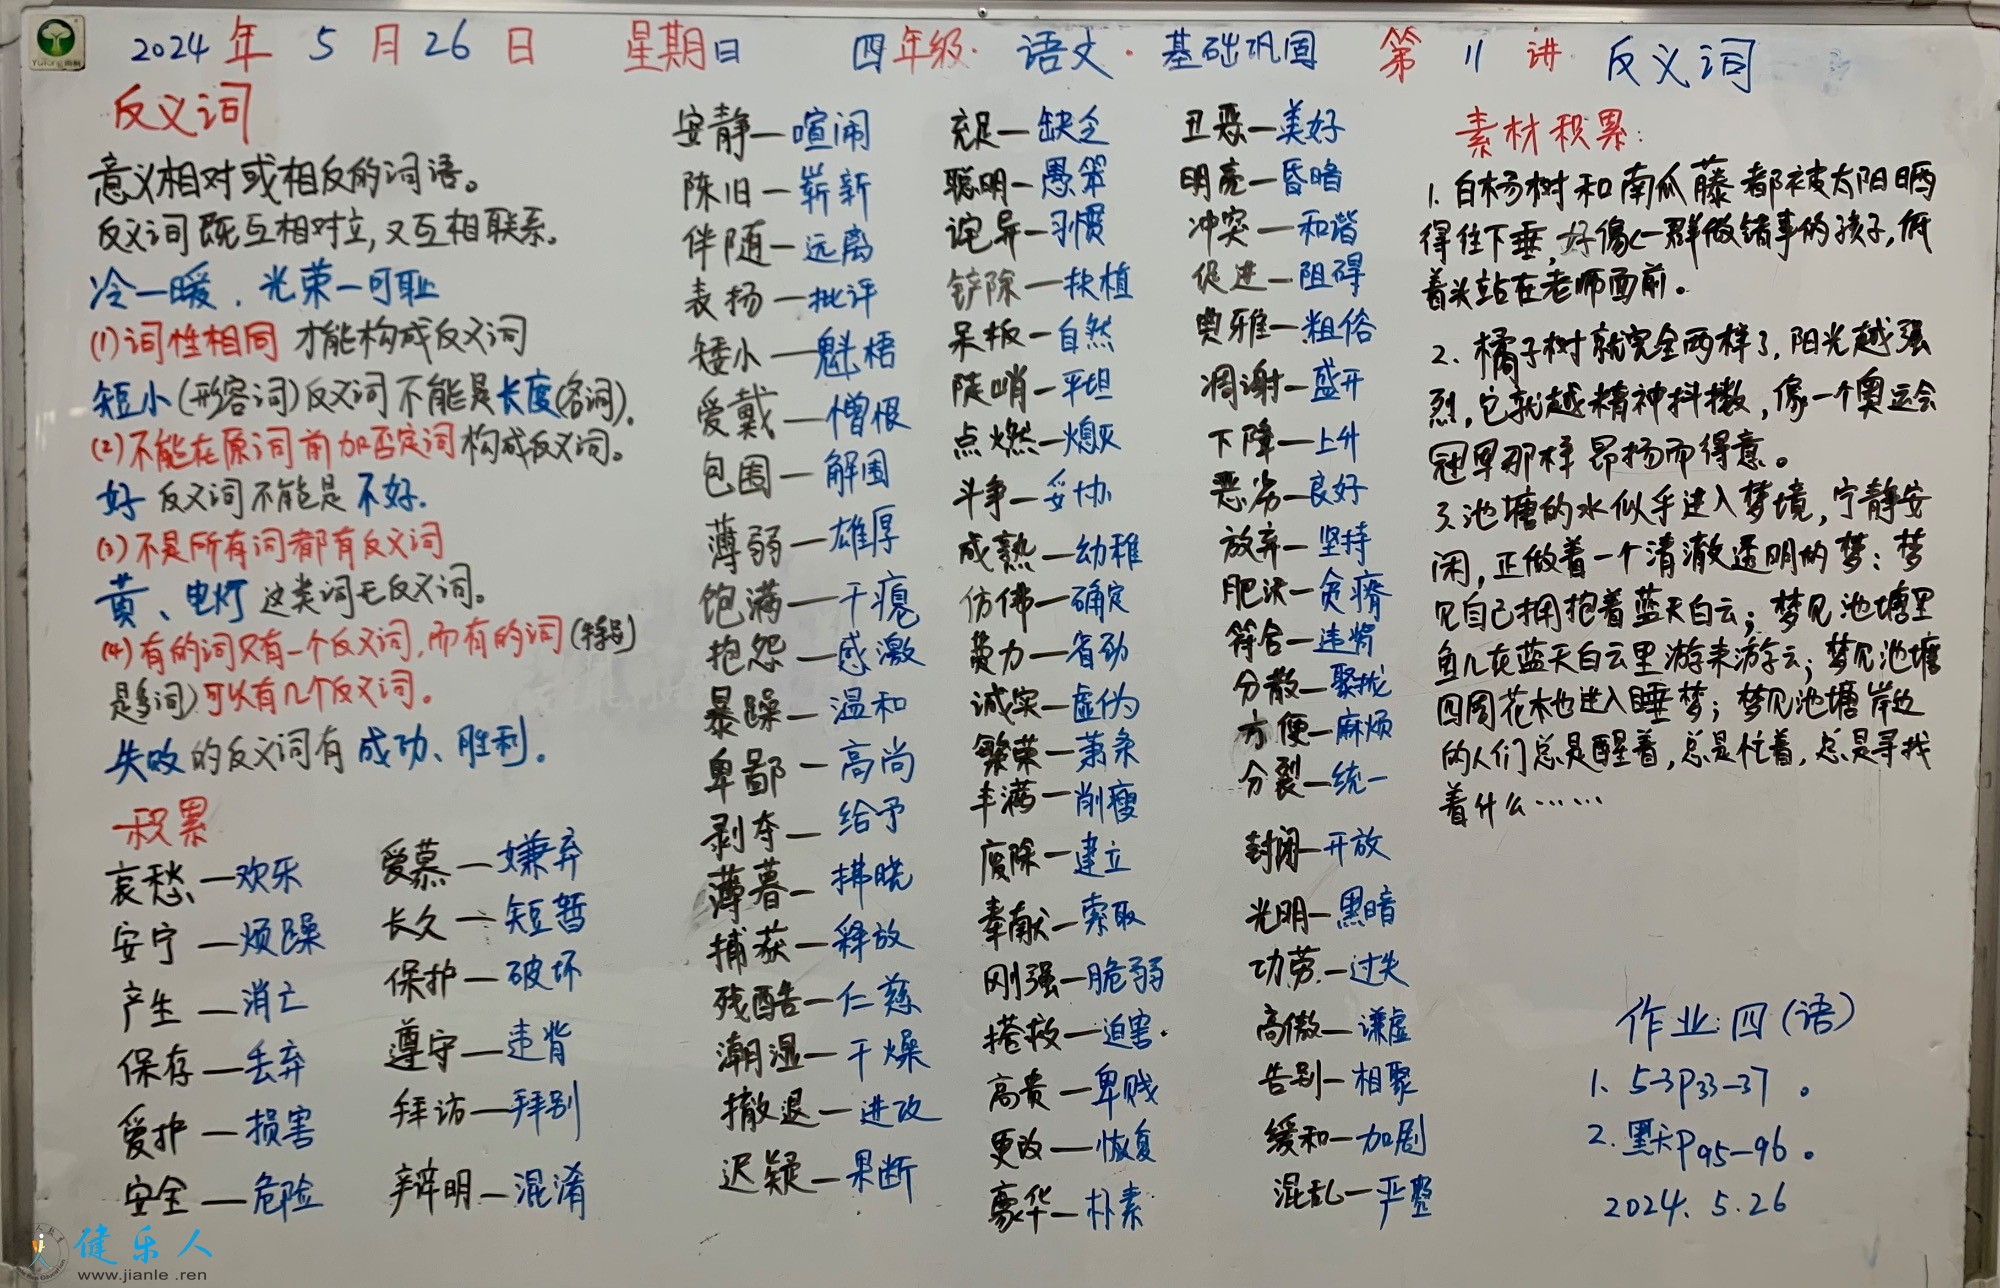 2024年5月26日 星期日 四年级·语文·基础巩固 第11讲 反义词
反义词
意义相对或相反的词语。
反义词既互相对立,又互相联系。
冷—暖、光荣—可耻
(1)词性相同 才能构成反义词
短小(形容词)反义词不能是长度(名词).
(2)不能在原词前加否定词构成反义词。
好 反义词不能是 不好.
(3)不是所有词都有反义词
黄、电灯 这类词无反义词。
(4)有的词只有一个反义词,而有的词(特别
是多词)可以有几个反义词。
失败的反义词有成功、胜利.
积累
哀愁—欢乐
安宁—烦躁
产生—消亡
保存—丢弃
爱护—损害
安全—危险
爱慕—嫌弃
长久—短暂
保护—破坏
遵守—违背
拜访—拜别
辩明—混淆
安静—喧闹
陈旧—崭新
伴随—远离
表扬—批评
矮小—魁梧
爱戴—憎恨
包围—解围
薄弱—雄厚
饱满—干瘪
抱怨—感激
暴躁—温和
卑鄙—高尚
剥夺—给予
薄暮—拂晓
捕获—释放
残酷—仁慈
潮湿—干燥
撤退—进攻
迟疑—果断
充足—缺乏
聪明—愚笨
诧异—习惯
铲除—扶植
呆板—自然
陡峭—平坦
点燃—熄灭
斗争—妥协
成熟—幼稚
仿佛—确定
费力—省劲
诚实—虚伪
繁荣—萧条
丰满—削瘦
废除—建立
奉献—索取
刚强—脆弱
搭救—迫害.
高贵—卑贱
更改—恢复
豪华—朴素
丑恶—美好
明亮—昏暗
冲突—和谐
促进—阻碍
典雅—粗俗
凋谢—盛开
下降—上升
恶劣—良好
放弃—坚持
肥沃—贫瘠
符合—违背
分散—聚拢
方便—麻烦
分裂—统一
封闭—开放
光明—黑暗
功劳—过失
高傲—谦虚
告别—相聚
缓和—加剧
混乱—严整
素材积累:
1.白杨树和南瓜藤都被太阳晒
得往下垂,好像一群做错事的孩子,低
着头站在老师面前。
2.橘子树就完全两样了,阳光越强
烈,它就越精神抖擞,像一个奥运会
冠军那样昂扬而得意。
3.池塘的水似乎进入梦境,宁静安
闲,正做着一个清澈透明的梦:梦
见自己拥抱着蓝天白云;梦见池塘里
鱼儿在蓝天白云里游来游去;梦见池塘
四周花木也进入睡梦;梦见池塘岸边
的人们总是醒着,总是忙着,总是寻找
着什么……
作业:四(语)
1. 53P33-37。
2. 默P95-96。
2024.5.26
健乐人
www.jianle.ren